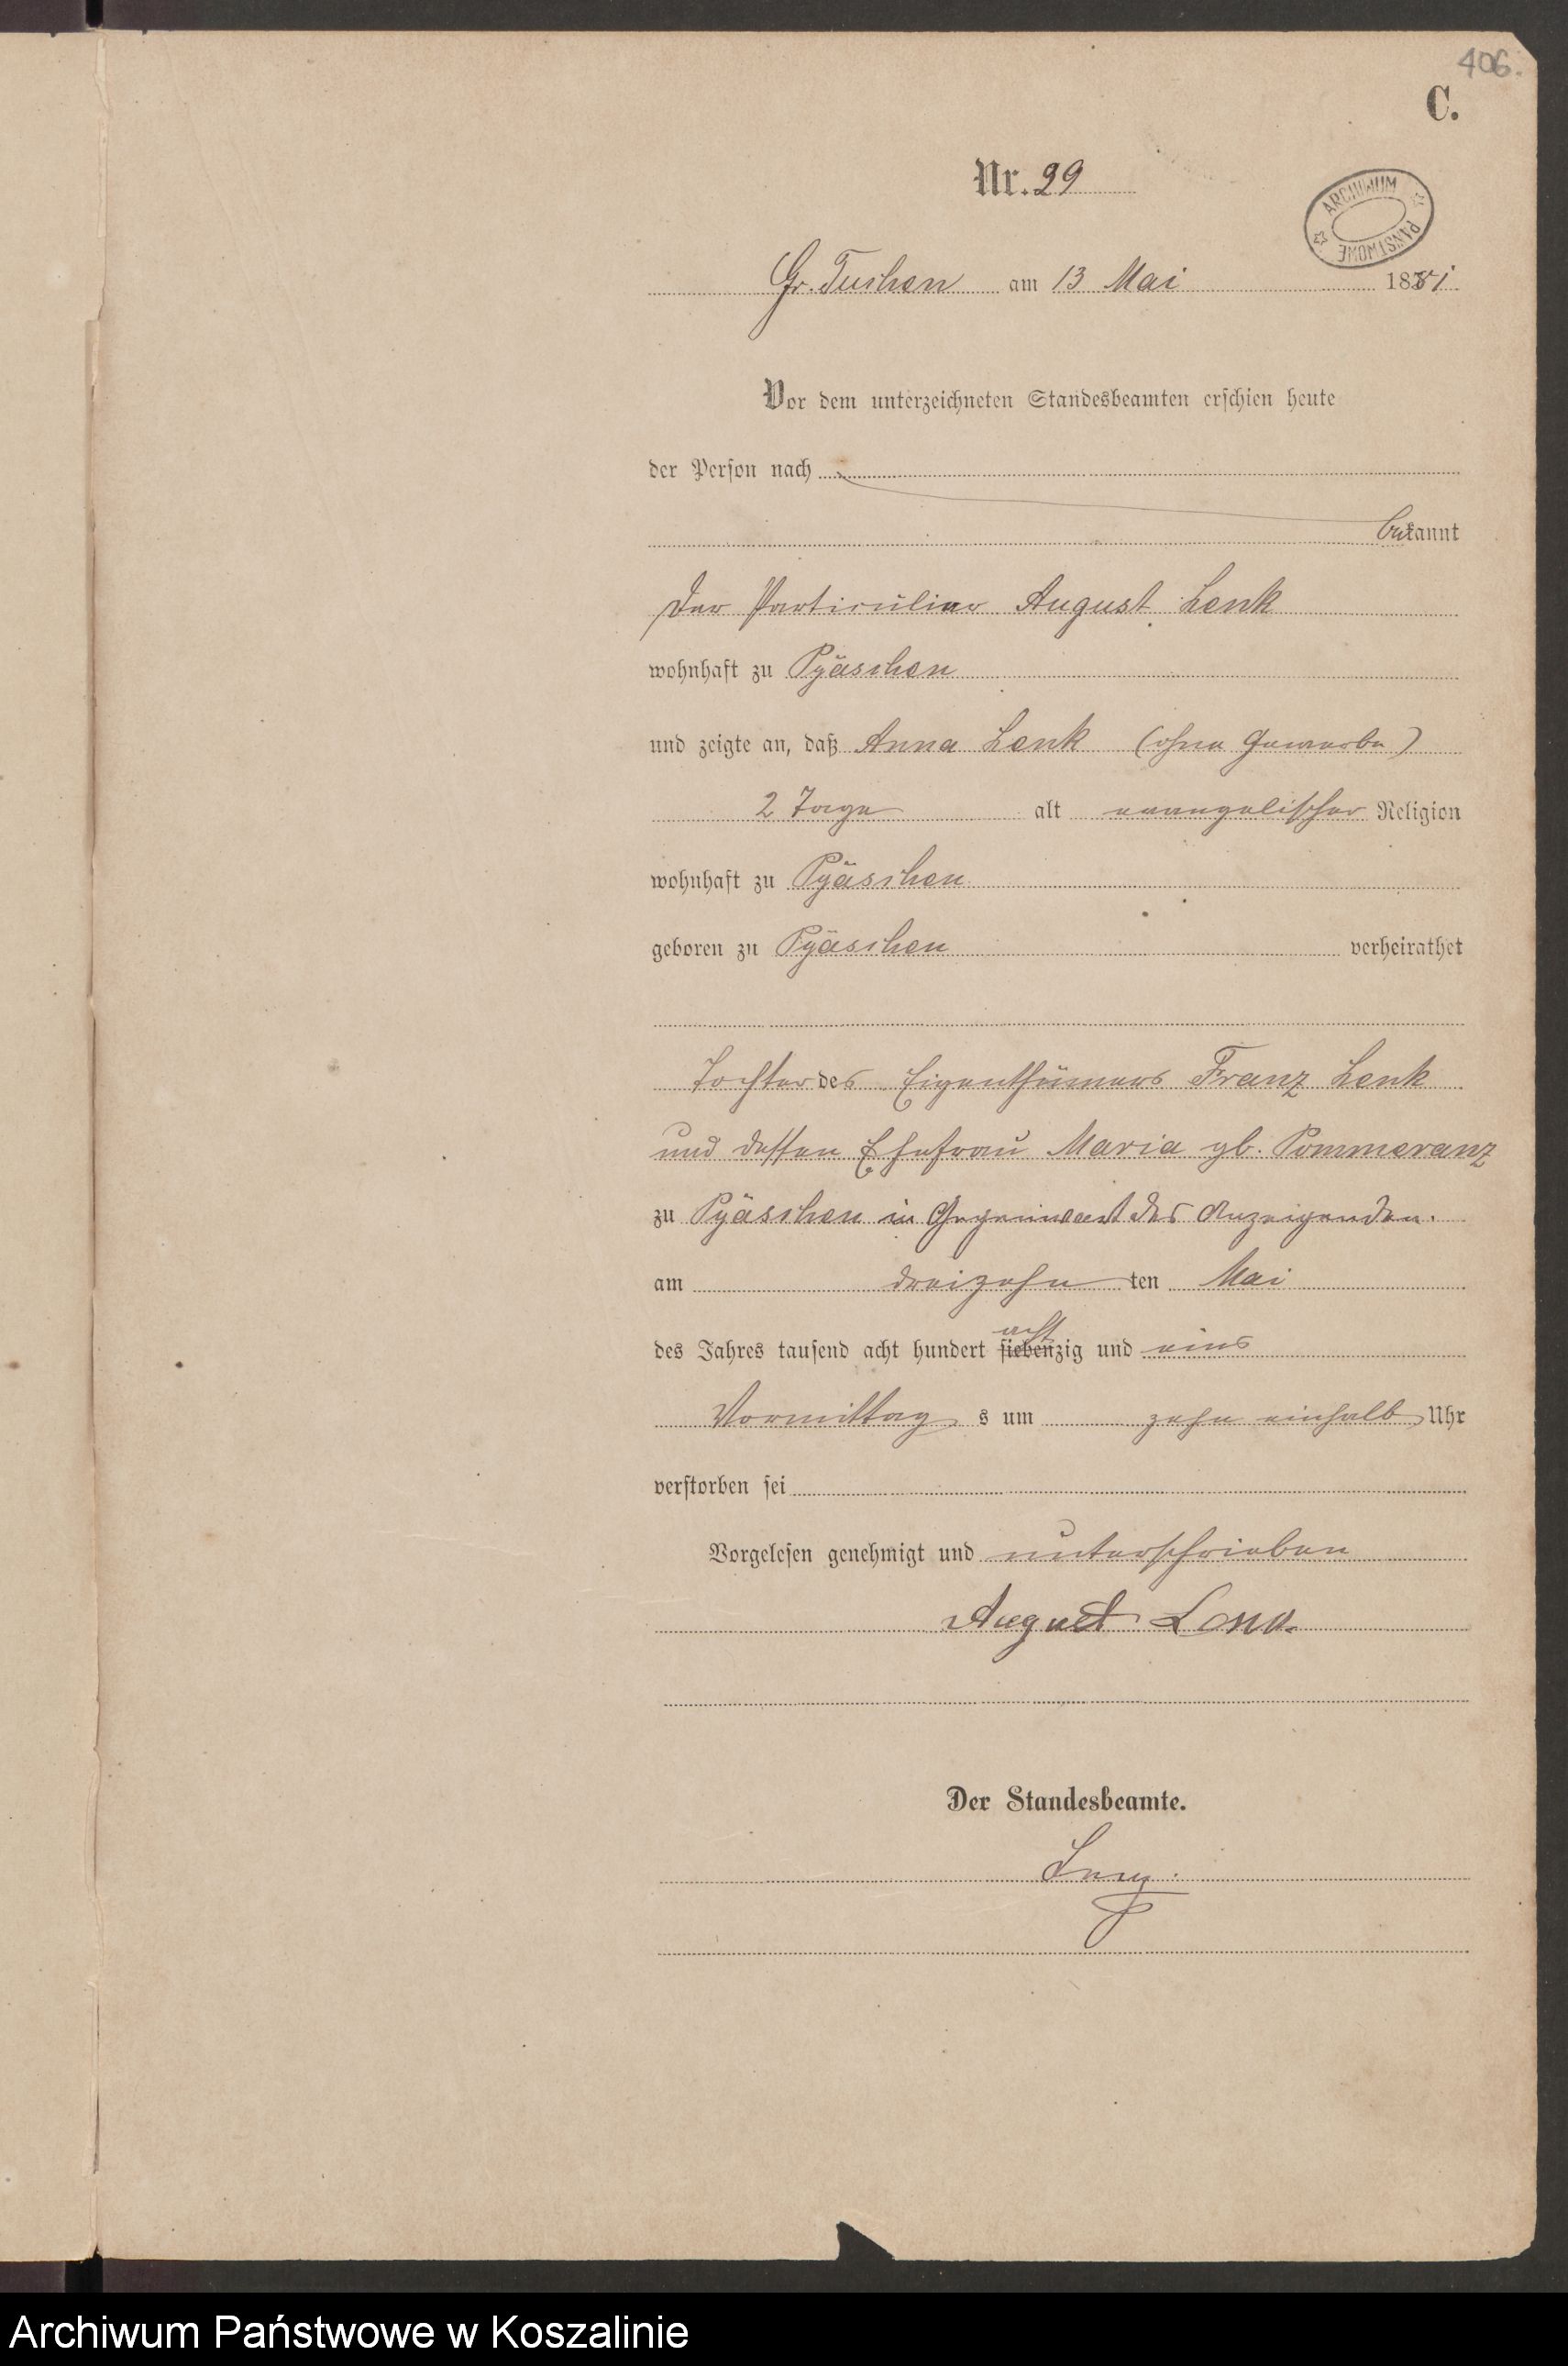 406.
C.
Nr. 29
ARCHIWUM PAŃSTWOWE
Gr. Tuchen am 13 Mai 1881
Vor dem unterzeichneten Standesbeamten erschien heute
der Person nach
bekannt
der Particulier August Lenk
wohnhaft zu Pyäschen
und zeigte an, daß Anna Lenk (ohne Gewerbe)
2 Tage alt evangelischer Religion
wohnhaft zu Pyäschen
geboren zu Pyäschen verheirathet
Tochter des Eigenthümers Franz Lenk
und dessen Ehefrau Maria gb. Pommeranz
zu Pyäschen in Gegenwart des Anzeigenden.
am dreizehn ten Mai
des Jahres tausend acht hundert siebenzig acht und eins
Vormittag s um zehn einhalb Uhr
verstorben sei
Vorgelesen genehmigt und unterschrieben
August
Der Standesbeamte.
Archiwum Państwowe w Koszalinie